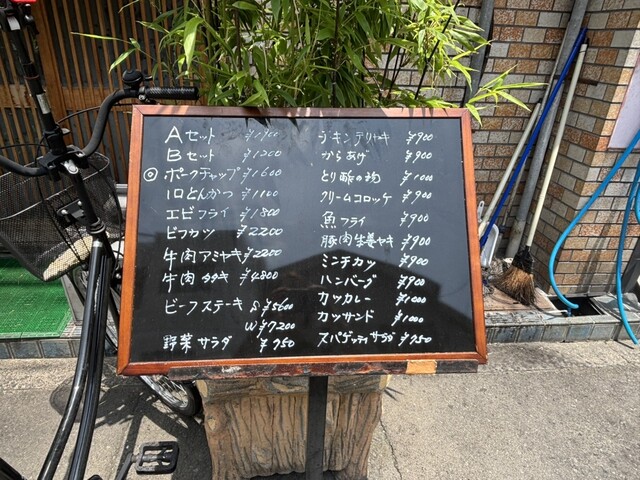 Aセット
Bセット ¥1200
◎ ポークチャップ ¥1600
1口とんかつ ¥1100
エビフライ ¥1800
ビフカツ ¥2200
牛肉アミヤキ ¥2200
牛肉タタキ ¥4800
ビーフステーキ S ¥5600
W ¥7,200
野菜サラダ ¥750
チキンテリヤキ ¥900
からあげ ¥900
とり酢の物 ¥1000
クリームコロッケ ¥900
魚フライ ¥900
豚肉生姜ヤキ ¥900
ミンチカツ ¥900
ハンバーグ ¥900
カツカレー ¥1000
カツサンド ¥1000
スパゲッティサラダ ¥750